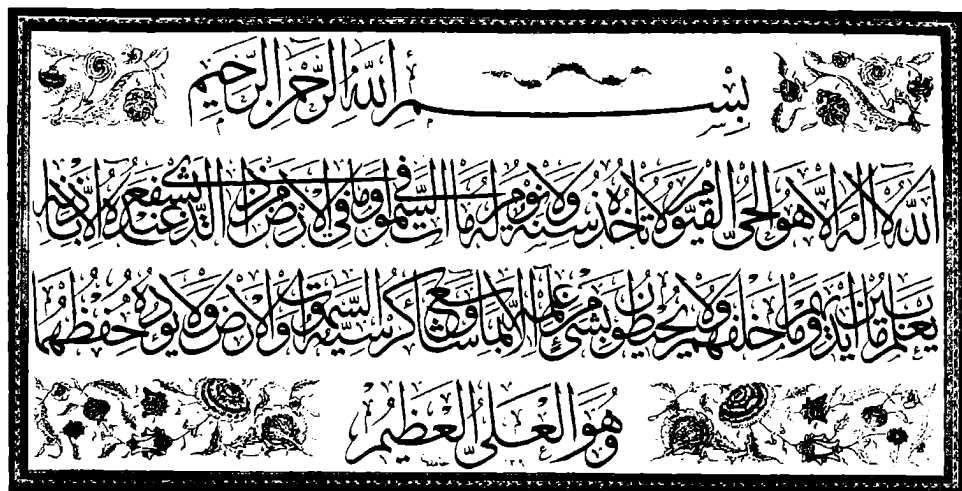 بِسْمِ اللّٰهِ الرَّحْمٰنِ الرَّحِيمِ
اللّٰهُ لَا إِلٰهَ إِلَّا هُوَ الْحَيُّ الْقَيُّومُ لَا تَأْخُذُهُ سِنَةٌ وَلَا نَوْمٌ لَهُ مَا فِي السَّمٰوَاتِ وَمَا فِي الْأَرْضِ مَنْ ذَا الَّذِي يَشْفَعُ عِنْدَهُ إِلَّا بِإِذْنِهِ
يَعْلَمُ مَا بَيْنَ أَيْدِيهِمْ وَمَا خَلْفَهُمْ وَلَا يُحِيطُونَ بِشَيْءٍ مِنْ عِلْمِهِ إِلَّا بِمَا شَاءَ وَسِعَ كُرْسِيُّهُ السَّمٰوَاتِ وَالْأَرْضَ وَلَا يَئُودُهُ حِفْظُهُمَا
وَهُوَ الْعَلِيُّ الْعَظِيمُ